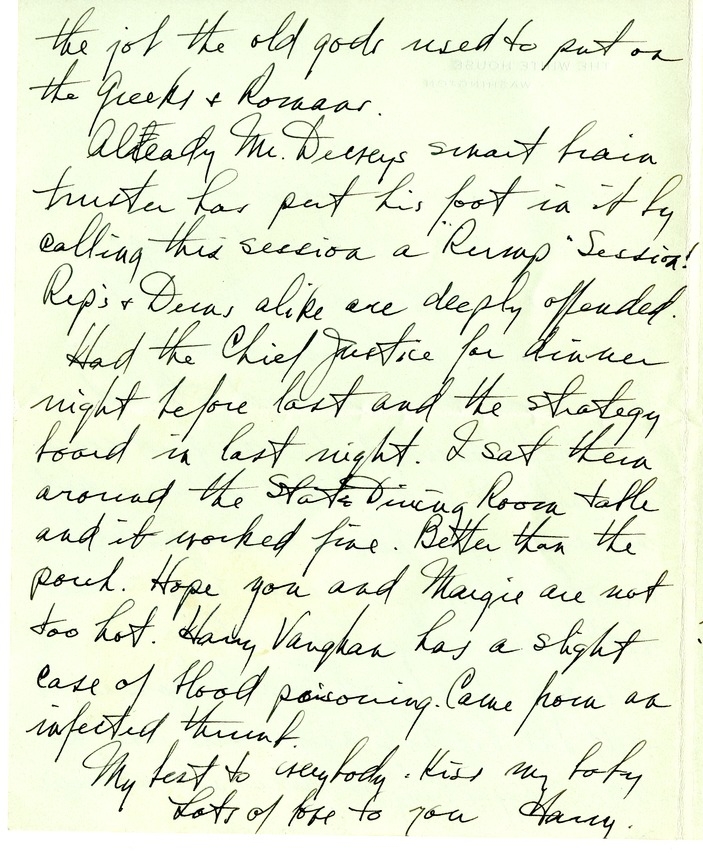 the job the old gods used to put on
the Greeks & Romans.
Already Mr. Deweys smart brain
truster has put his foot in it by
calling this session a "Rump" Session!
Rep's & Dems alike are deeply offended.
Had the Chief Justice for dinner
night before last and the strategy
board in last night. I sat them
around the State Dining Room table
and it worked fine. Better than the
porch. Hope you and Margie are not
too hot. Harry Vaughan has a slight
case of blood poisoning. Came from an
infected thumb.
My best to everybody. Kiss my baby
Lots of love to you Harry.
THE WHITE HOUSE
WASHINGTON